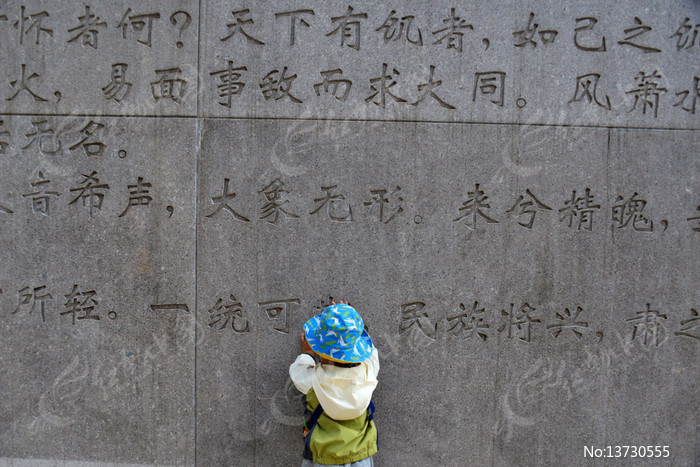 怀者何？天下有饥者，如己之饥
火，易面事敌而求大同。风萧水
无名。
音希声，大象无形。来兮精魄，
所轻。一统可 民族将兴，肃
No:13730555